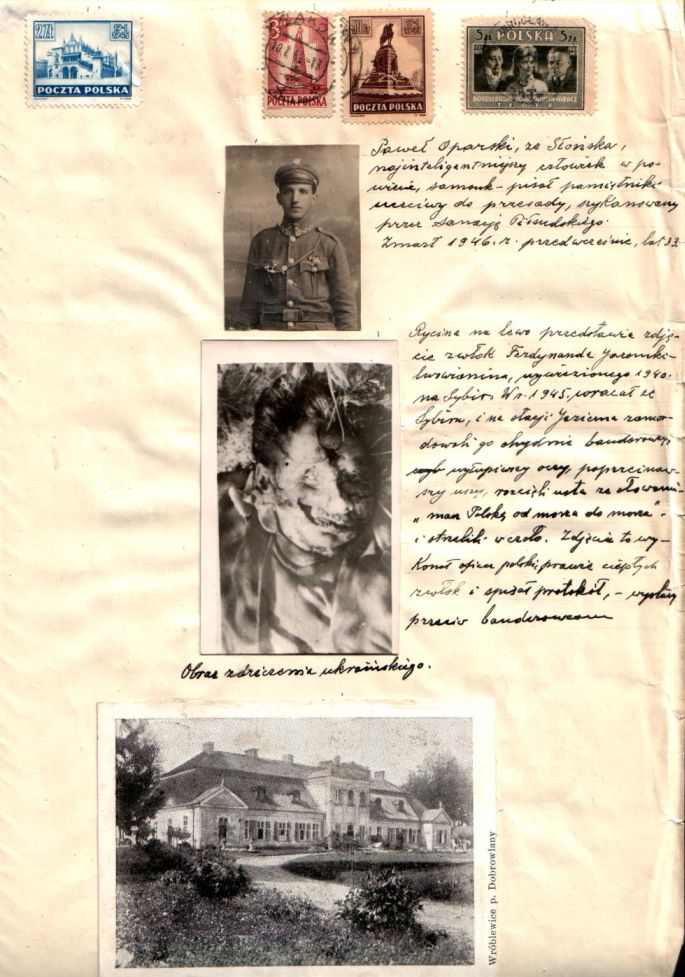 2 ZŁ
POCZTA POLSKA
3
KRAKÓW
POCZTA POLSKA
50
POCZTA POLSKA
5 ZŁ POLSKA 5 ZŁ
BOGUSŁAWSKI
Paweł Oparski, ze Słońska,
najinteligentniejszy człowiek w po-
wiecie, samouk - pisał pamiętniki
uczciwy do przesady, szykanowany
przez Sanację Piłsudskiego.
Zmarł 1946. r. przedwcześnie, lat 33.
Rycina na lewo przedstawia zdję-
cie zwłok Ferdynanda
lwowianina, wywiezionego 1940.
na Sybir. W r. 1945. wracał ze
Sybiru, i na stacji zamor-
dowali go ohydnie banderowcy,
wyłupiwszy oczy, poprzecinaw-
szy uszy, rozcięli usta ze słowami:
„masz Polskę od morza do morza.
i strzelili w czoło. Zdjęcie to wy-
konał oficer polski, prawie ciepłych
zwłok i spisał protokół, -
przeciw banderowcom
Obraz zdziczenia ukraińskiego.
Wróblewice p. Dobrowlany